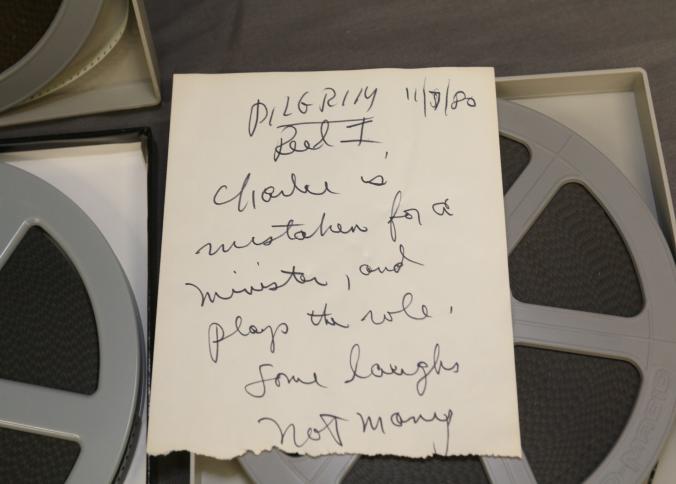 PILGRIM 11/9/80
Reel I
Charlie is
mistaken for a
minister, and
plays the role.
Some laughs
Not many